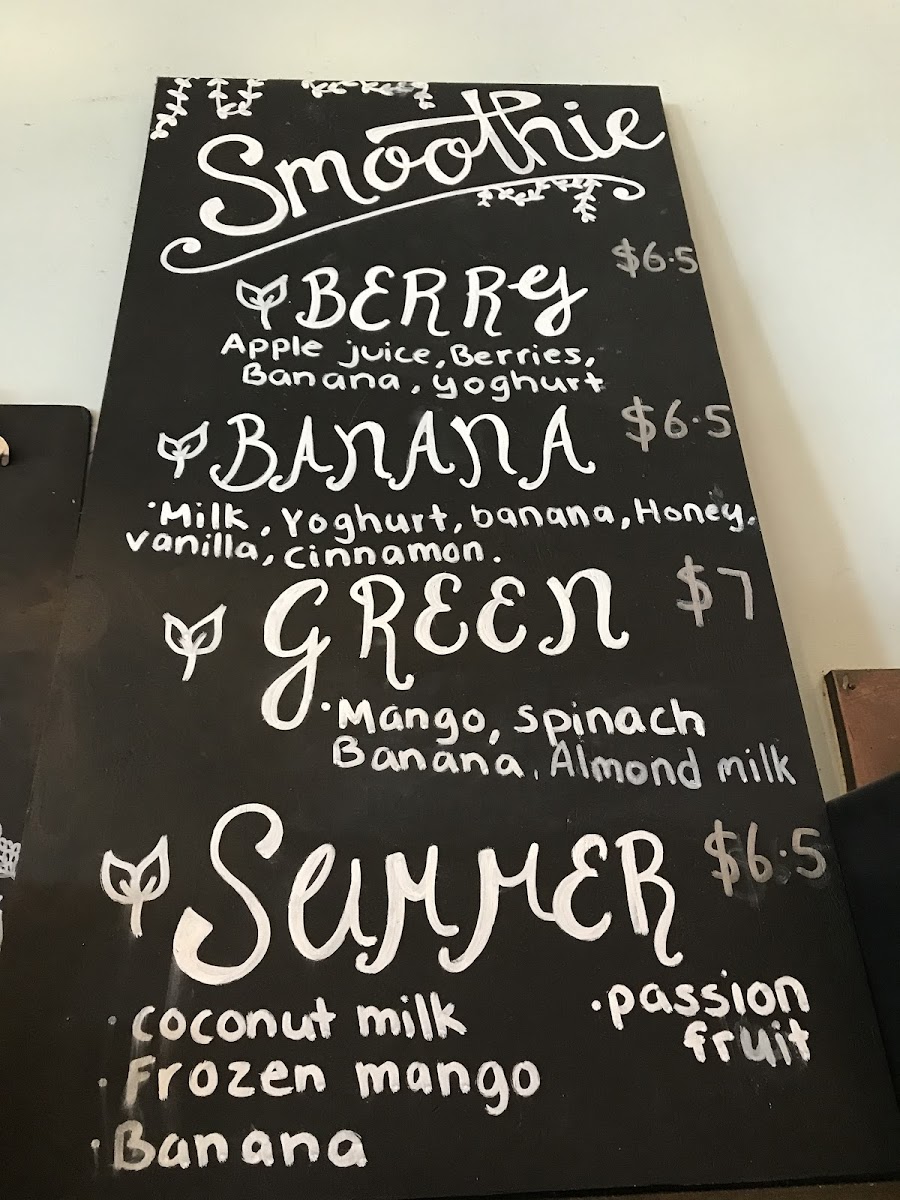 Smoothie
$6.5
BERRy
Apple juice, Berries,
Banana, yoghurt
BANANA $6.5
·Milk, Yoghurt, banana, Honey,
vanilla, cinnamon.
GREEN $7
·Mango, spinach
Banana, Almond milk
SUMMER $6.5
·coconut milk ·passion
fruit
·Frozen mango
·Banana